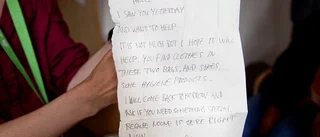 I SAW YOU YESTERDAY
AND WANT TO HELP.
IT IS NOT MUCH BUT I HOPE IT WILL
HELP YOU FIND CLOTHES IN
THESE TWO BAGS, AND SOME
HYGIENE PRODUCTS.
I WILL COME BACK TOMORROW AND
ASK IF YOU NEED SOMETHING